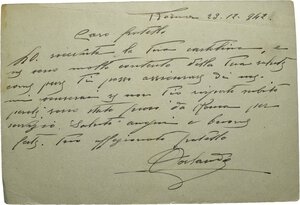 Roma 22.12.942.
Caro fratello
Ho ricevuto la tua cartolina, e
sono molto contento della tua salute
così pure ti posso assicurare di me.
non ti rispondo subito
perché sono stato fuori da Roma per
servizio. Saluti auguri e buone
feste. tuo affezionato fratello
Orlando